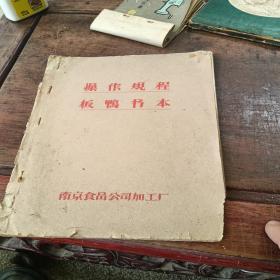 操作规程
板鸭书本
南京食品公司加工厂